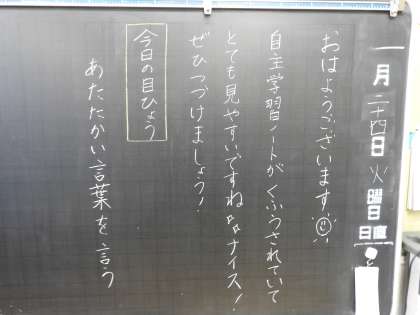 一月二十四日火曜日
日直
おはようございます
自主学習ノートがくふうされていて
とても見やすいですね ナイス！
ぜひつづけましょう！
今日の目ひょう
あたたかい言葉を言う